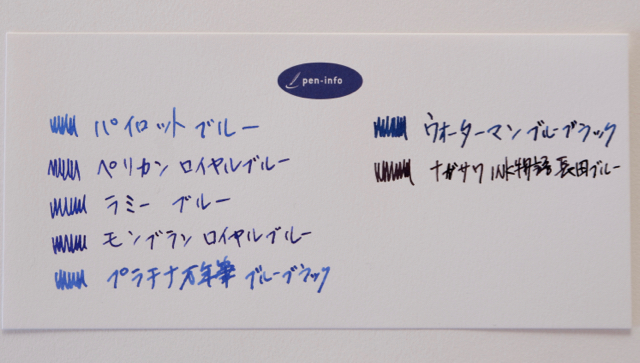 pen-info
パイロット ブルー
ペリカン ロイヤルブルー
ラミー ブルー
モンブラン ロイヤルブルー
プラチナ万年筆 ブルーブラック
ウォーターマン ブルーブラック
ナガサワ INK物語 長田ブルー